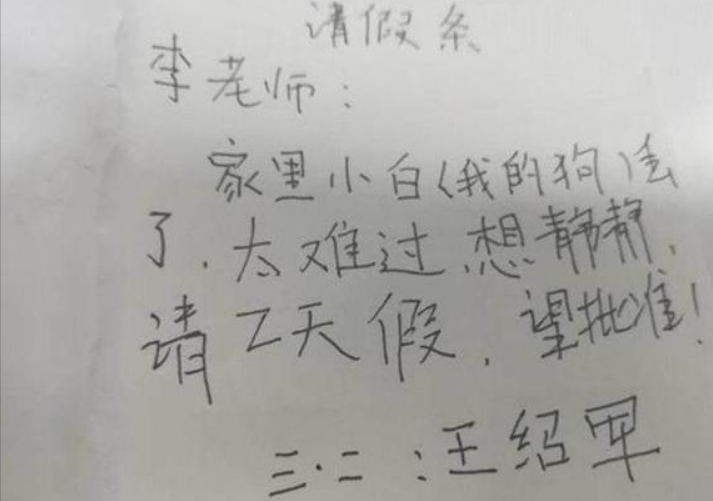 请假条
李老师:
家里小白(我的狗)去
了.太难过.想静静.
请2天假.望批准!
三·二:王绍军